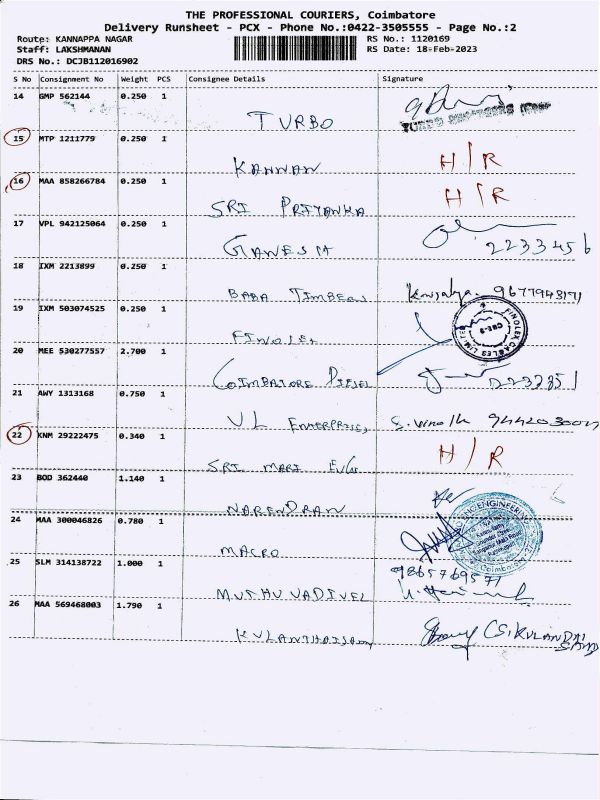 THE PROFESSIONAL COURIERS, Coimbatore
Delivery Runsheet - PCX - Phone No.:0422-3505555 - Page No.:2
Route: KANNAPPA NAGAR RS No.: 1120169
Staff: LAKSHMANAN RS Date: 18-Feb-2023
DRS No.: DCJB112016902
S No Consignment No Weight PCS Consignee Details Signature
14 GMP 562144 0.250 1
TURBO
15 MTP 1211779 0.250 1
KANNAN H/R
16 MAA 858266784 0.250 1
SRI PRIYANKA H/R
17 VPL 942125064 0.250 1
GANESH 2233456
18 IXM 2213899 0.250 1
BABA TIMBERS 9677943171
19 IXM 503074525 0.250 1
FINOLEX FINOLEX CABLES LIMITED
20 MEE 530277557 2.700 1
COIMBATORE DIESEL
21 AWY 1313168 0.750 1
VL ENTERPRISES S. Vinoth
22 KNM 29222475 0.340 1
SRI MARI H/R
23 BOD 362440 1.140 1
NARENDRAN
24 MAA 300046826 0.780 1
MACRO
25 SLM 314138722 1.000 1 9865769571
MUTHUVADIVEL
26 MAA 569468003 1.790 1
KULANTHAISAMY